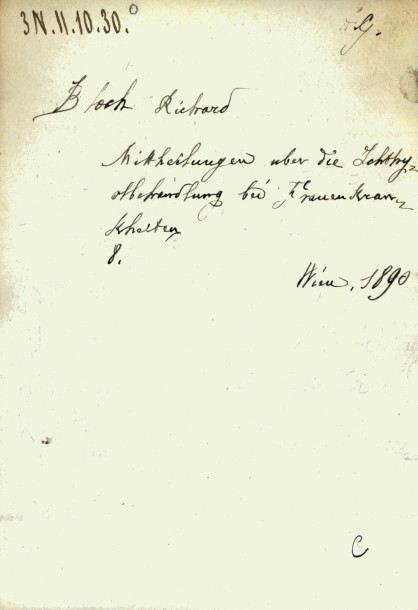 3N.11.10.30.
G.
Bloch Richard
Mittheilungen uber die Ichthy-
olbehandlung bei Frauenkran-
kheiten
8.
Wien, 1890
C